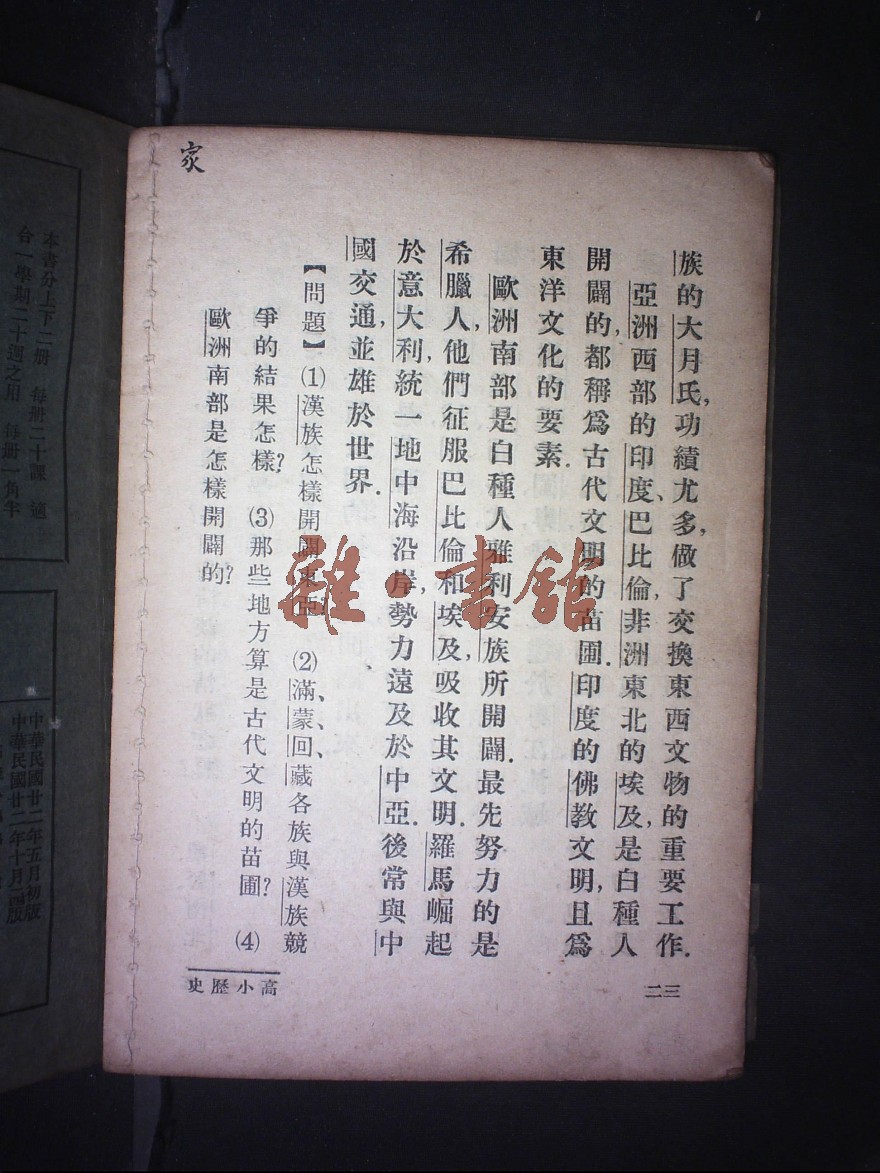 族的大月氏,功績尤多,做了交換東西文物的重要工作.
亞洲西部的印度、巴比倫,非洲東北的埃及,是白種人
開闢的,都稱爲古代文明的苗圃.印度的佛教文明,且爲
東洋文化的要素.
歐洲南部是白種人雅利安族所開闢.最先努力的是
希臘人,他們征服巴比倫和埃及,吸收其文明.羅馬崛起
於意大利,統一地中海沿岸,勢力遠及於中亞.後常與中
國交通,並雄於世界.
【問題】⑴漢族怎樣開闢東亞?⑵滿、蒙、回、藏各族與漢族競
爭的結果怎樣?⑶那些地方算是古代文明的苗圃?⑷
歐洲南部是怎樣開闢的?
家
史歷小高
二三
雜·書館
本書分上下二册 每册二十課 適
合一學期二十週之用 每册一角半
中華民國廿二年五月初版
中華民國廿二年十月二版